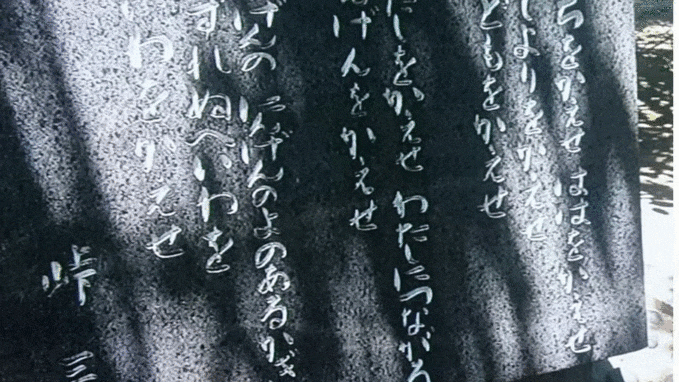 ちをかえせ ははをかえせ
しよりをかえせ
どもをかえせ
たしをかえせ わたしにつながる
げんをかえせ
げんの にんげんのよのあるかぎ
ずれぬへいわを
いわをかえせ
峠 三